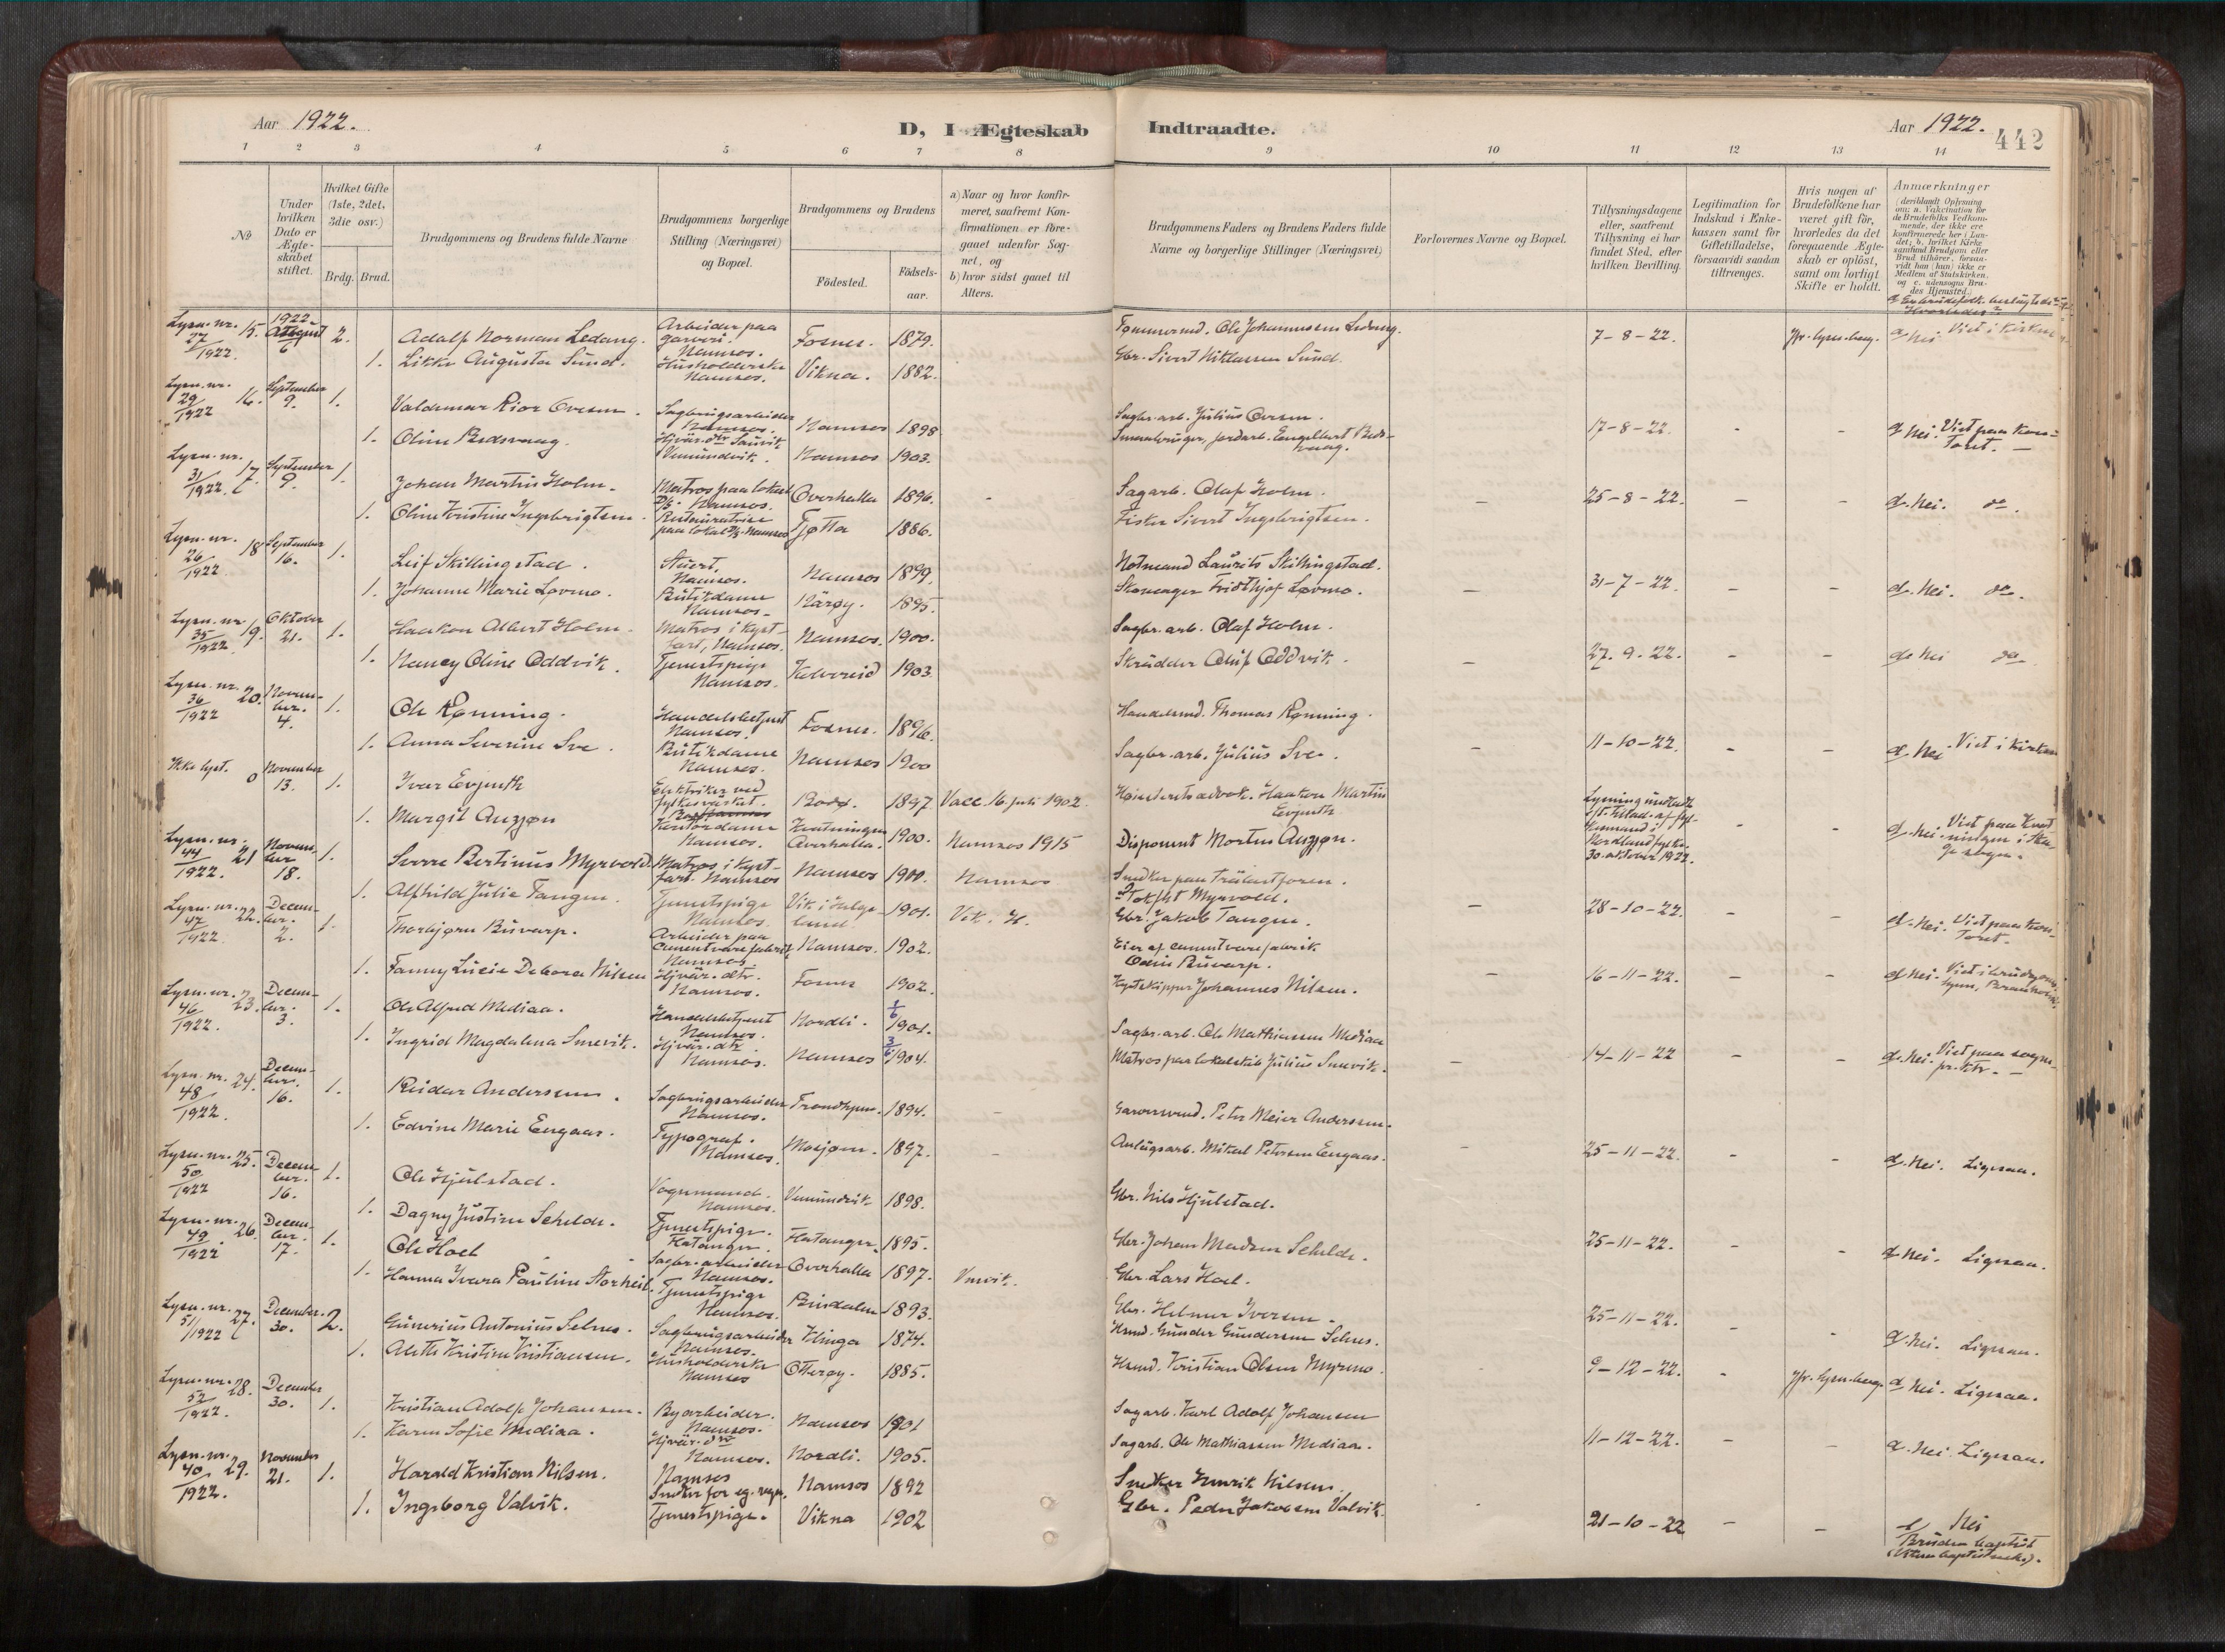 Aar 1922.
D, I Ægteskab Indtraadte.
Aar 1922.
442
1 2 3 4 5 6 7 8 9 10 11 12 13 14
No
Under hvilken Dato er Ægteskabet stiftet.
Hvilket Gifte (1ste, 2det, 3die osv.)
Brdg. Brud.
Brudgommens og Brudens fulde Navne
Brudgommens borgerlige Stilling (Næringsvei) og Bopæl.
Brudgommens og Brudens
Fødested.
Fødsels-aar.
a) Naar og hvor konfirmeret, saafremt Konfirmationen er foregaaet udenfor Sognet, og
b) hvor sidst gaaet til Alters.
Brudgommens Faders og Brudens Faders fulde Navne og borgerlige Stillinger (Næringsvei)
Forlovernes Navne og Bopæl.
Tillysningsdagene eller, saafremt Tillysning ei har fundet Sted, efter hvilken Bevilling.
Legitimation for Indskud i Enkekassen samt for Giftetilladelse, forsaavidt saadan tiltrænges.
Hvis nogen af Brudefolkene har været gift før, hvorledes da det foregaaende Ægteskab er opløst, samt om lovligt Skifte er holdt.
Anmærkninger (deriblandt Oplysning om: a. Vakcination for de Brudefolks Vedkommende, der ikke ere konfirmerede her i Landet; b. hvilket Kirkesamfund Brudgom eller Brud tilhører, forsaavidt han (hun) ikke er Medlem af Statskirken, og c. udensogns Brudes Hjemsted.)
Lysn. nr. 27/1922. 15. 1922 August 6 2. Adolf Norman Ledang. Arbeider paa garveri. Namsos. Fosnes. 1879. Tømmermd. Ole Johannessen Ledang. 7-8-22. Jfr. lysn.bevg. d Nei. Viet i kirken
1. Likka Augusta Sund. Husholderske Namsos. Vikna. 1882. Gbr. Sivert Niklassen Sund.
Lysn. nr. 29/1922 16. September 9. 1. Valdemar Rior Ovesen. Sagbrugsarbeider Namsos. Namsos 1898 Sagbr. arb. Julius Ovesen. 17-8-22. - - d Nei. Viet paa kontoret. -
1. Oline Bedsvaag. Hjvær. dtr Vemundvik. Namsos 1903.
Lysn. nr. 31/1922. 17. September 9. 1. Johan Martin Holm. Matros paa lokal D/S. Namsos. Overhalla 1896. - Sagarb. Olaf Holm. - 25-8-22. - - d. Nei. do.
1. Oline Kristine Ingebrigtsen. Namsos Tjøtta 1886. Fisker Sivert Ingebrigtsen.
Lysn. nr. 26/1922. 18 September 16. 1. Leif Skillingstad. Stuert, Namsos. Namsos 1899. Notmand Laurits Skillingstad. - 31-7-22. - - d. Nei. do.
1. Johanne Marie Løvmo. Butikdame Namsos. Nærøy. 1895. Skomager Fridthjof Løvmo.
Lysn. nr. 35/1922. 19. Oktober 21. 1. Haakon Albert Holm. Matros i kystfart, Namsos. Namsos. 1900. Sagbr. arb. Olaf Holm. - 27. 9. 22. - - d. Nei do
1. Nancy Oline Oddvik. Tjenestpige Namsos. Kolvereid 1903. Skrædder Oluf Oddvik.
Lysn. nr. 36/1922 20. November. 4. 1. Ole Rønning. Handelsbetjent Namsos. Fosnes. 1896. Handelsmd. Thomas Rønning. - 11-10-22. - - d. Nei. Viet i kirken
1. Anna Severine Sve. Butikdame Namsos. Namsos 1900 Sagbr. arb. Julius Sve.
Ikke lyst. 0 November 13. 1. Iver Evjenth Elektriker ved fylkesværket. Bodø. 1897. Vacc. 16. juli 1902. Høiesteretsadvok. Haakon Martin Evjenth. Lysning undladt Nordland fylke. 30. oktober 1922. - - d. Nei.
1. Margit Auzjøn Kontordame Namsos. Overhalla. 1900. Namsos 1915 Disponent Mortus Auzjøn.
Lysn. nr. 44/1922. 21 November 18. 1. Sverre Bertinius Myrvold. Matros i kystfart. Namsos Namsos 1900. Namsos Myrvold. - 28-10-22. - - d. Nei. Viet paa kontoret.
1. Alfhild Julie Tangen. Tjenestpige Namsos. Vik i Helgeland. 1901. Vik. H. Gbr. Jakob Tangen.
Lysn. nr. 47/1922. 22. December. 2. 1. Thorbjørn Buvarp. Arbeider paa cementvarefabrik Namsos. Namsos. 1902. Eier af cementvarefabrik Odin Buvarp. - 16-11-22. d Nei.
1. Fanny Lucie Debora Nilsen Hjvær. dtr. Namsos. Fosnes 1902. Kystskipper Johannes Nilsen.
Lysn. nr. 46/1922. 23. December. 3. 1. Ole Alfred Mediaa. Handelsbetjent Namsos. Nordli. 1/6 1901. Sagbr. arb. Ole Mathiassen Mediaa - 14-11-22 - - d. Nei. Viet paa sogn.pr.ktr. -
1. Ingrid Magdalena Smevik. Hjvær. dtr. Namsos. Namsos 3/6 1904. Matros paa lokalskib Julius Smevik.
Lysn. nr. 48/1922. 24. December. 16. 1. Reidar Anderssen. Sagbrugsarbeider Namsos. Trondhjem. 1894. - Garversvend. Peter Meier Anderssen. - 25-11-22. - - d. Nei. Ligesaa.
1. Edvine Marie Engaas. Typograf. Namsos. Mosjøen. 1897. - Anlægsarb. Mikael Petersen Engaas.
Lysn. nr. 50/1922 25. December. 16. 1. Ole Hjulstad. Vognmand. Namsos. Vemundvik 1898. Gbr. Nils Hjulstad. 25-11-22. - - d. Nei. Ligesaa.
1. Dagny Justine Selelde. Tjenestpige. Flatanger. Flatanger. 1895. Gbr. Johan Madsen Selelde.
Lysn. nr. 49/1922. 26. December. 17. 1. Ole Hoel Sagbr. arbeider Namsos. Overhalla 1897. Gbr. Lars Hoel. 25-11-22. - - d. Nei. Ligesaa.
1. Hanna Ivara Pauline Storheil. Tjenestpige Namsos. Bindalen 1893. Gbr. Helmer Iversen.
Lysn. nr. 51/1922 27. December. 30. 2. Gunerius Antonius Selnes. Sagbrugsarbeider Namsos. Klinga 1874. Hsmd. Gunder Gundersen Selnes. 9-12-22. - Jfr. lysn.bevg. d Nei. Ligesaa.
1. Alette Kristine Kristiansen. Husholderske Namsos Otterøy. 1885. Hsmd. Kristian Olsen Myrmo.
Lysn. nr. 52/1922. 28. December 30. 1. Kristian Adolf Johansen. Byarbeider. Namsos. Namsos 1901 Sagarb. Karl Adolf Johansen 11-12-22. - - d. Nei. Ligesaa.
1. Karen Sofie Mediaa. Hjvær. dtr Namsos. Nordli. 1905. Sagarb. Ole Mathiassen Mediaa.
Lysn. nr. 40/1922. 29. November 21. 1. Harald Kristian Nilsen. Namsos Snedker for eg. regn. Namsos 1892 Snedker Henrik Nilsen. 21-10-22 - - d Nei
1. Ingeborg Valvik. Tjenestpige. Vikna 1902 Gbr. Peder Jakobsen Valvik. Bruden baptist